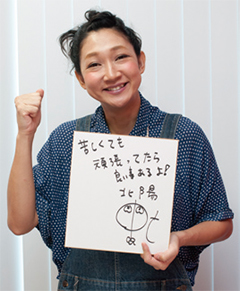 苦しくても
頑張ってたら
良い事あるよ!
北陽